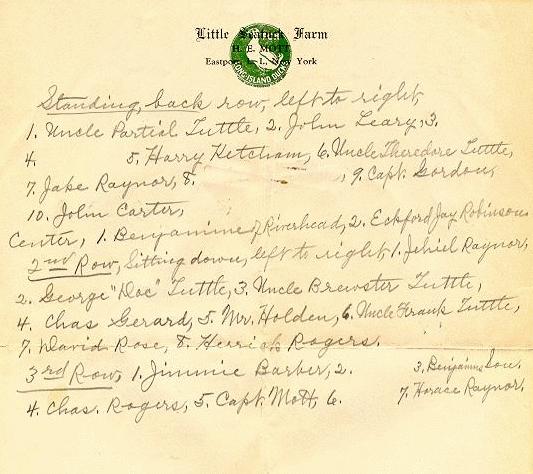 Little Seatuck Farm
H. E. MOTT
Eastport, L. I., New York
LONG ISLAND DUCKS
Standing, back row, left to right,
1. Uncle Partial Tuttle, 2. John Leary, 3.
4. 5. Harry Ketcham, 6. Uncle Theredore Tuttle,
7. Jake Raynor, 8. , 9. Capt. Gordon,
10. John Carter,
Center, 1. Benjamine of Riverhead, 2. Eckford Jay Robinson
2nd Row, Sitting down, left to right, 1. Jehiel Raynor,
2. George "Doc" Tuttle, 3. Uncle Brewster Tuttle,
4. Chas Gerard, 5. Mr. Holden, 6. Uncle Frank Tuttle,
7. David Rose, 8. Herrick Rogers.
3rd Row, 1. Jimmie Barber, 2. 3. Benjamine Son.
4. Chas. Rogers, 5. Capt. Mott, 6. 7. Horace Raynor.